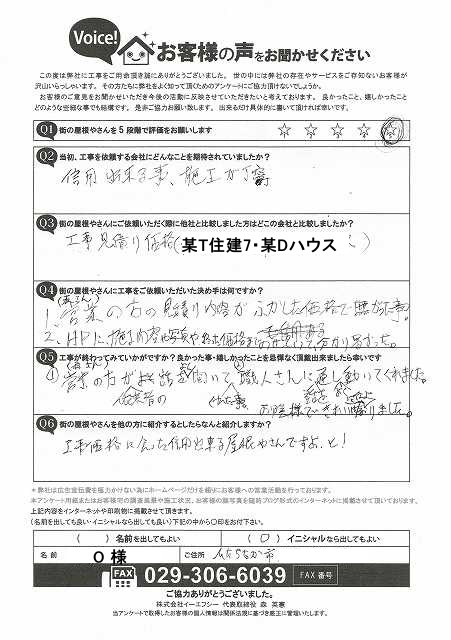 Voice!
お客様の声をお聞かせください
この度は弊社に工事をご用命頂き誠にありがとうございました。世の中には弊社の存在やサービスをご存知ないお客様が
沢山いらっしゃいます。その方たちに弊社をよく知って頂くためのアンケートにご協力頂けないでしょうか。
お客様のご意見をお聞かせいただき今後の活動に反映させていただきたいと考えております。良かったこと、嬉しかったこと
どのような些細な事でも結構です。是非ご協力お願い致します。出来るだけ具体的に書いて頂ければ幸いです。
Q1 街の屋根やさんを5段階で評価をお願いします ☆ ☆ ☆ ☆ ☆
Q2 当初、工事を依頼する会社にどんなことを期待されていましたか?
信用出来る事、施工が丁寧
Q3 街の屋根やさんにご依頼いただく際に他社と比較しました方はどこの会社と比較しましたか?
工事見積り価格(某T住建7・某Dハウス)
Q4 街の屋根やさんに工事をご依頼いただいた決め手は何ですか?
1. 営業の方の見積り内容が
2. HPに施工内容 写真や 価格
Q5 工事が終わってみていかがですか?良かった事・嬉しかったことを忌憚なく頂戴出来ましたら幸いです
① 営業の方が お話を聞いて職人さんに通し動いてくれました。
お陰様で
Q6 街の屋根やさんを他の方に紹介するとしたらなんと紹介しますか?
工事価格に合った信用出来る屋根やさんですよ、と!
*弊社は広告宣伝費を極力かけない為にホームページだけを頼りにお客様への営業活動を行っております。
*本アンケート用紙またはお客様宅の調査風景や施工状況、お客様の顔写真を随時ブログ形式のインターネットに掲載させて頂いております。
上記内容をインターネットや印刷物に掲載させて頂きます。
(名前を出しても良い・イニシャルなら出しても良い)下記の中から〇印をお付下さい。
( )名前を出してもよい (〇)イニシャルなら出してもよい
名前 O 様 ご住所 ひたちなか市
FAX 029-306-6039 FAX番号
ご協力ありがとうございました。
株式会社イーエフシー 代表取締役 森 英憲
当アンケートで取得したお客様の個人情報は関係法規に基づき厳正に管理いたします。